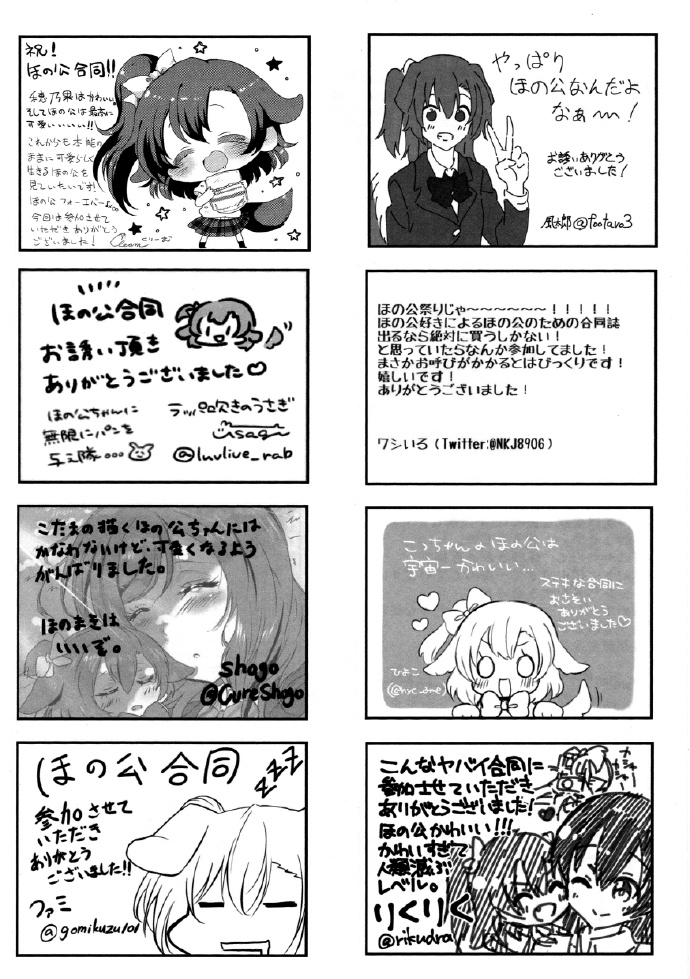 祝!
ほの公合同!!
穂乃果はかわいい。
そしてほの公は最高に
可愛いいいい!!
これからも本能の
ままに可愛らしく
生きるほの公を
見ていたいです!
ほの公フォーエバー
今回は参加させて
いただきありがとう
ございました!
やっぱり
ほの公なんだよ
なぁ〜!
お誘いありがとう
ございました!
風太郎@footaro3
ほの公合同
お誘い頂き
ありがとうございました♡
ほの公ちゃんに
無限にパンを
与え隊…
ラッパ吹きのうさぎ
usagi
@luvlive_rab
ほの公祭りじゃ〜〜〜〜〜〜!!!!!
ほの公好きによるほの公のための合同誌
出るなら絶対に買うしかない!
と思っていたらなんか参加してました!
まさかお呼びがかかるとはびっくりです!
嬉しいです!
ありがとうございました!
ワシいろ(Twitter:@NKJ8906)
こたまの描くほの公ちゃんには
かなわないけど、可愛くなるよう
がんばりました。
ほのまきは
いいぞ。
shogo
@CureShogo
こっちゃんのほの公は
宇宙一かわいい…
ステキな合同に
おさそい
ありがとう
ございました♡
ひよこ
ほの公合同
zzz
参加させて
いただき
ありがとう
ございました!!
ファミ
@gomikuzu101
こんなヤバイ合同に
参加させていただき
ありがとうございました!
ほの公かわいい!!!
かわいすぎて
人類滅ぶ
レベル。
りくりく
@rikudra